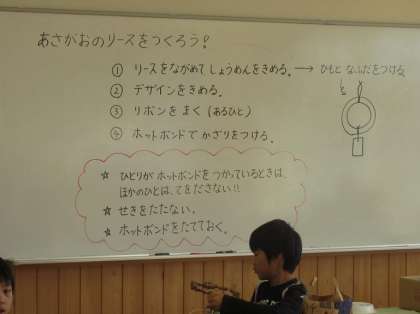 あさがおのリースをつくろう!
① リースをながめて しょうめんをきめる。→ ひもと なふだをつける。
② デザインをきめる。
③ リボンを まく (あるひと)
④ ホットボンドで かざりをつける。
☆ ひとりが ホットボンドを つかっているときは、
ほかのひとは、てをださない!!
☆ せきをたたない。
☆ ホットボンドをたてておく。